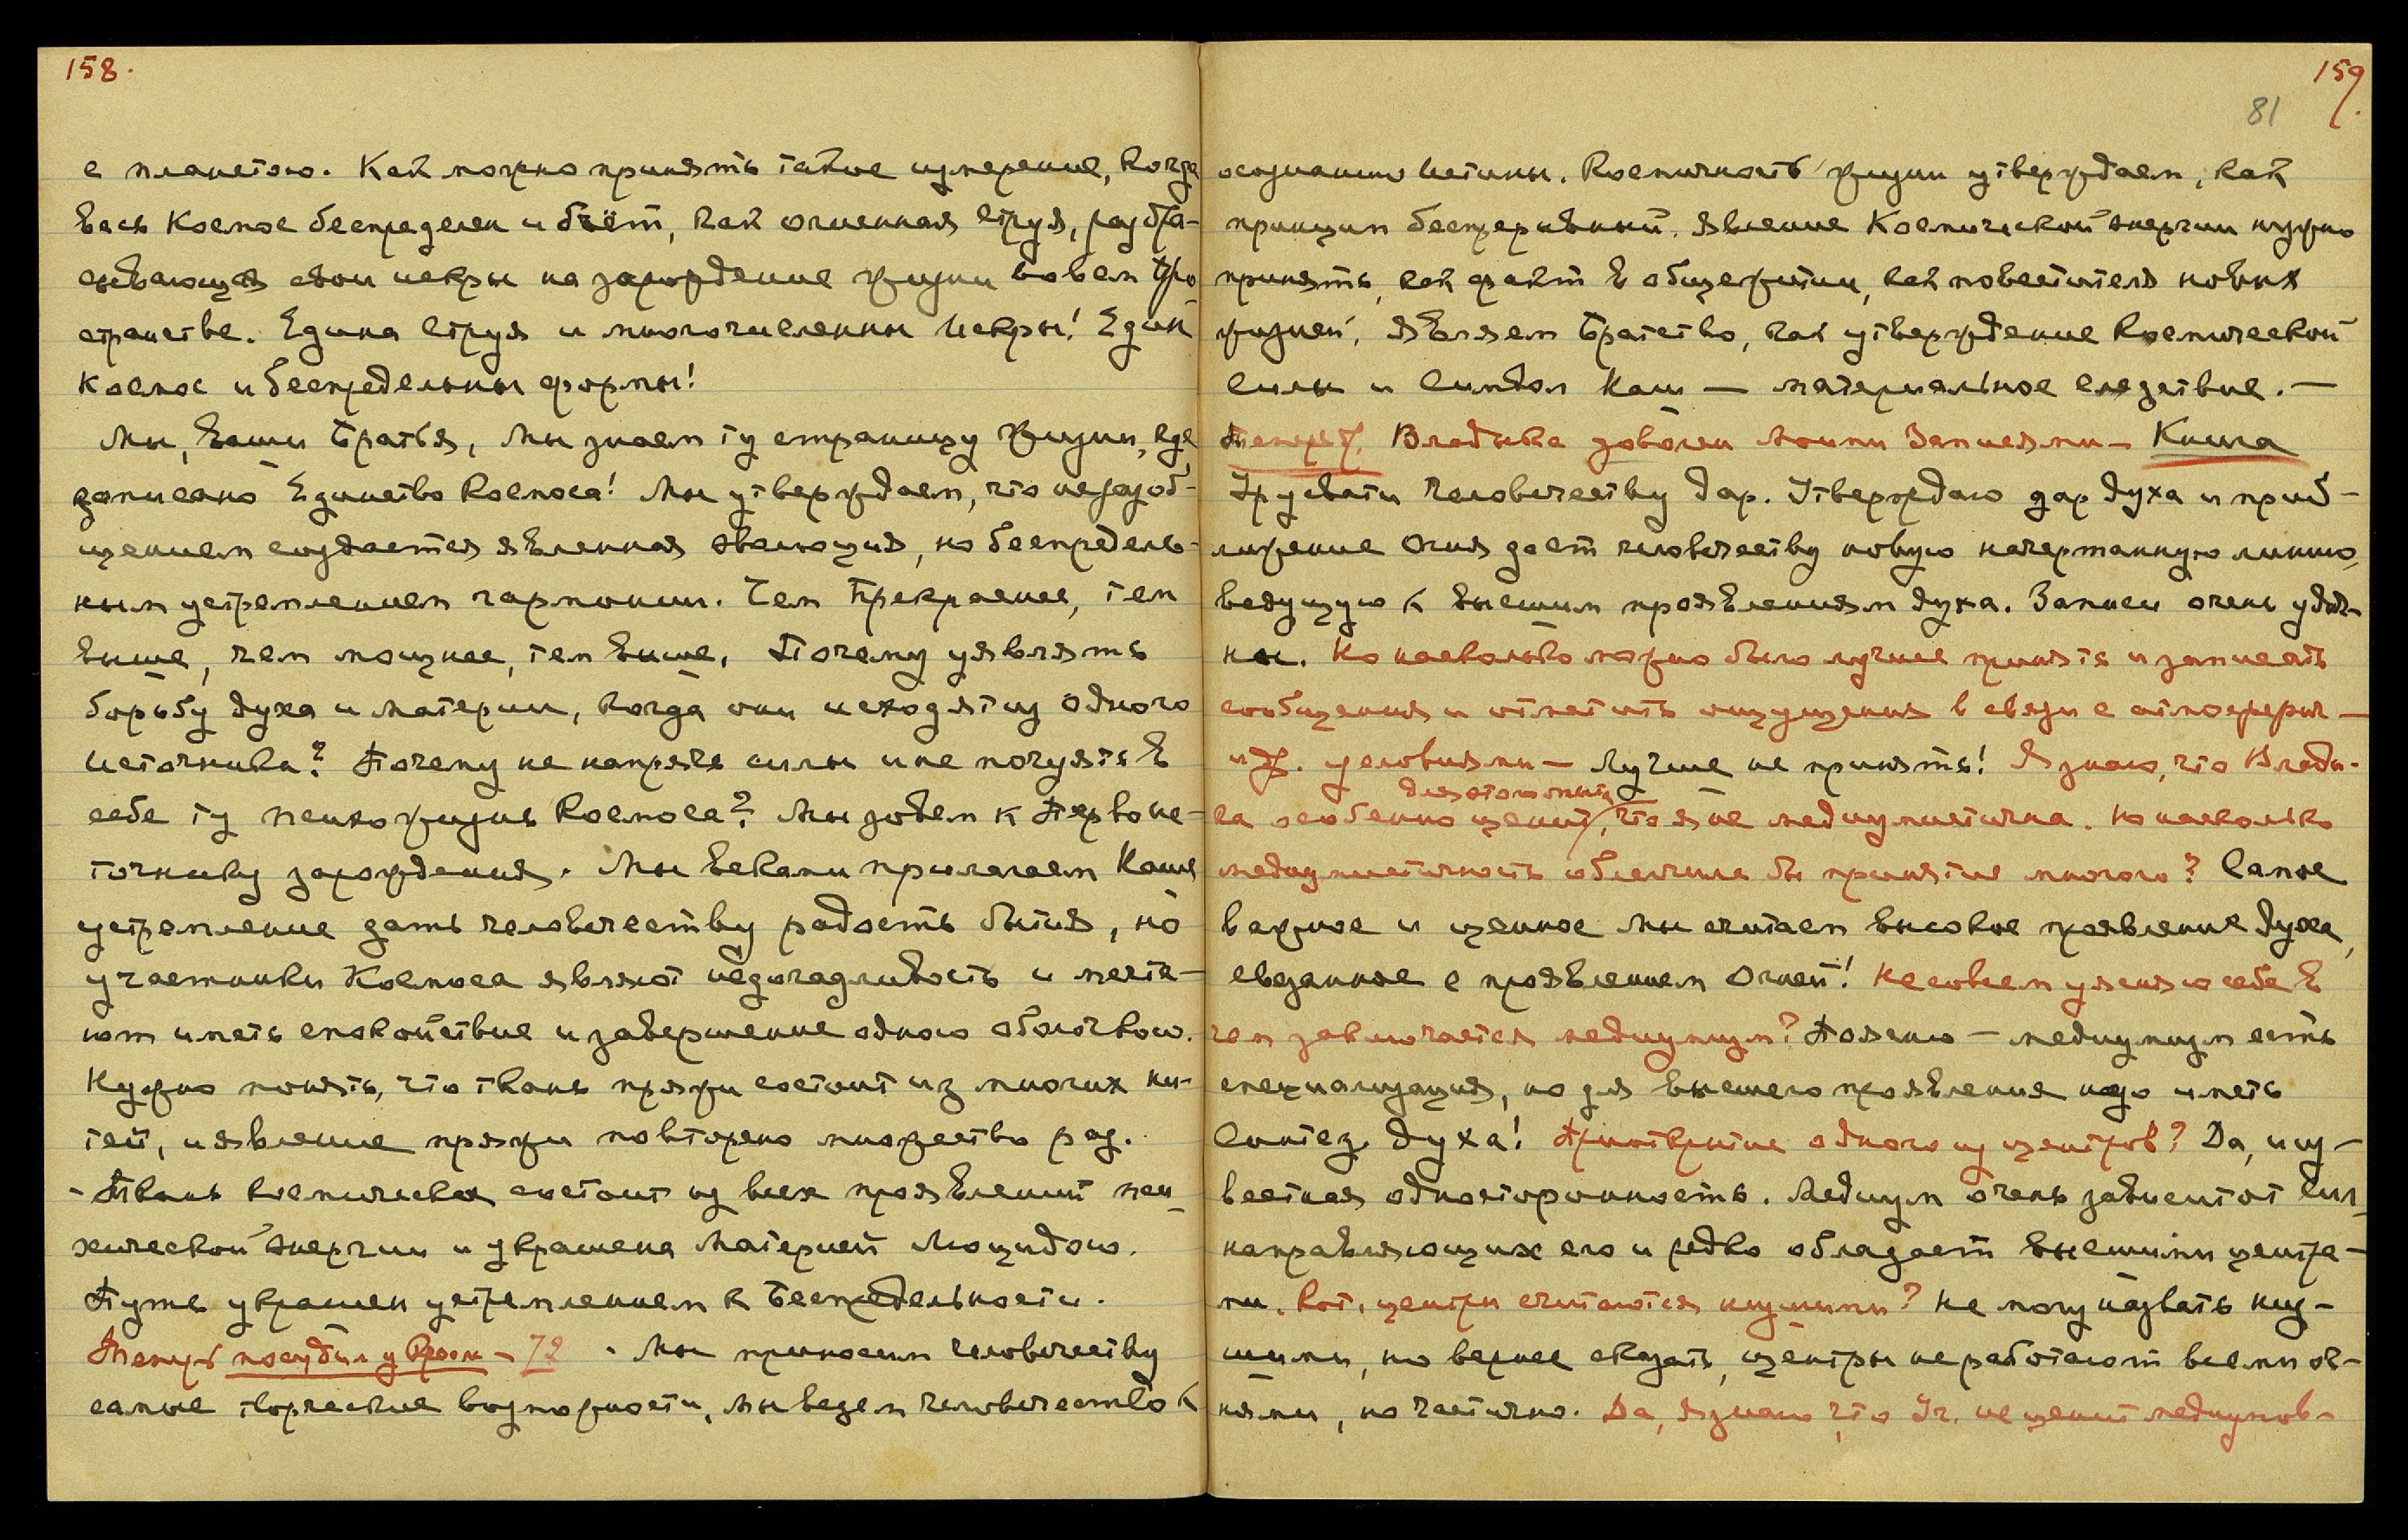 158.
с планетою. Как можно принять такое измерение, когда
весь Космос беспределен и бьёт, как огненная струя, разбра-
сывающая свои искры на зарождение жизни во всем про-
странстве. Едина струя и многочисленны Искры! Един
Космос и беспредельны формы!
Мы, Ваши Братья, Мы знаем ту страницу Жизни, где
записано Единство Космоса! Мы утверждаем, что не разоб-
щением создается явленная эволюция, но беспредель-
ным устремлением гармонии. Чем Прекраснее, тем
выше, чем мощнее, тем выше. Почему уявлять
борьбу духа и материи, когда они исходят из одного
Источника? Почему не напрячь силы и не почуять в
себе ту психожизнь Космоса? Мы зовем к Первоис-
точнику зарождения. Мы веками прилагаем Наше
устремление дать человечеству радость бытия, но
участники Космоса являют недогадливость и мечта-
ют иметь спокойствие и завершение одною оболочкою.
Нужно понять, что ткань пряжи состоит из многих ни-
тей, и явление пряжи повторено множество раз.
- Ткань космическая состоит из всех проявлений пси-
хической энергии и украшена Материей Люцидою.
Путь украшен устремлением к Беспредельности.
Теперь - 72. Мы приносим человечеству
самые творческие возможности, мы ведем человечество к
159.
81
осознанию Истины. Космичность жизни утверждаем, как
принцип беспрерывный. Явление Космической энергии нужно
принять, как факт в общежитии, как повестителя новых
жизней, Являем Братство, как утверждение Космической
Силы и Символ Наш — материальное следствие. —
Теперь Владыка доволен моими Записями - Книга
Уруствати Человечеству Дар. Утверждаю дар духа и приб-
лижение Огня дает человечеству новую начертанную линию,
ведущую к высшим проявлениям духа. Записи очень удач-
ны. Но насколько можно было лучше принять и записать
сообщения и отметить ощущения в связи с атмосферич—
и др. условиями — Лучше не принять! Я знаю, что Влады-
ка особенно ценит, что я не медиумистична. Но насколько
медиумистичность облегчила бы принятие многого? Самое
важное и ценное Мы считаем высокое проявление Духа,
связанное с проявлением Огней! Не совсем уясняю себе в
чем заключается медиумизм? Поясню — медиумизм есть
специализация, но для высшего проявления надо иметь
Синтез Духа! Приоткрытие одного из центров? Да, и из-
вестная односторонность. Медиум очень зависит от сил
направляющих его и редко обладает высшими центра-
ми. Кот. центры считаются низшими? Не могу назвать низ-
шими, но вернее сказать, центры не работают всеми ог-
нями, но частично. Да, я знаю, что Уч. не ценит медиумов-